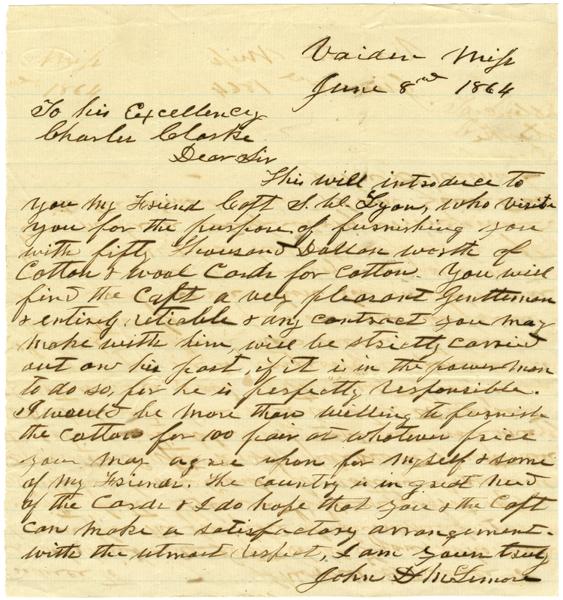 Vaiden Miss
June 8nd 1864
To his Excellency
Charles Clarke
Dear Sir
This will introduce to
you my Friend Capt S. W. Lyons, who visits
you for the purpose of furnishing you
with fifty Thousand Dollars worth of
Cotton & Wool Cards for cotton. You will
find the Capt a very pleasant Gentleman
& entirely reliable & any contract you may
make with him, will be strictly carried
out on his part, if it is in the power man
to do so, for he is perfectly responsible.
I would be more than willing to furnish
the cotton for 100 pair at whatever price
you may agree upon for myself & some
of my Friends. The country is in great need
of the Cards & I do hope that you & the Capt
can make a satisfactory arrangement.
with the utmost respect, I am yours truly
John D McLemore